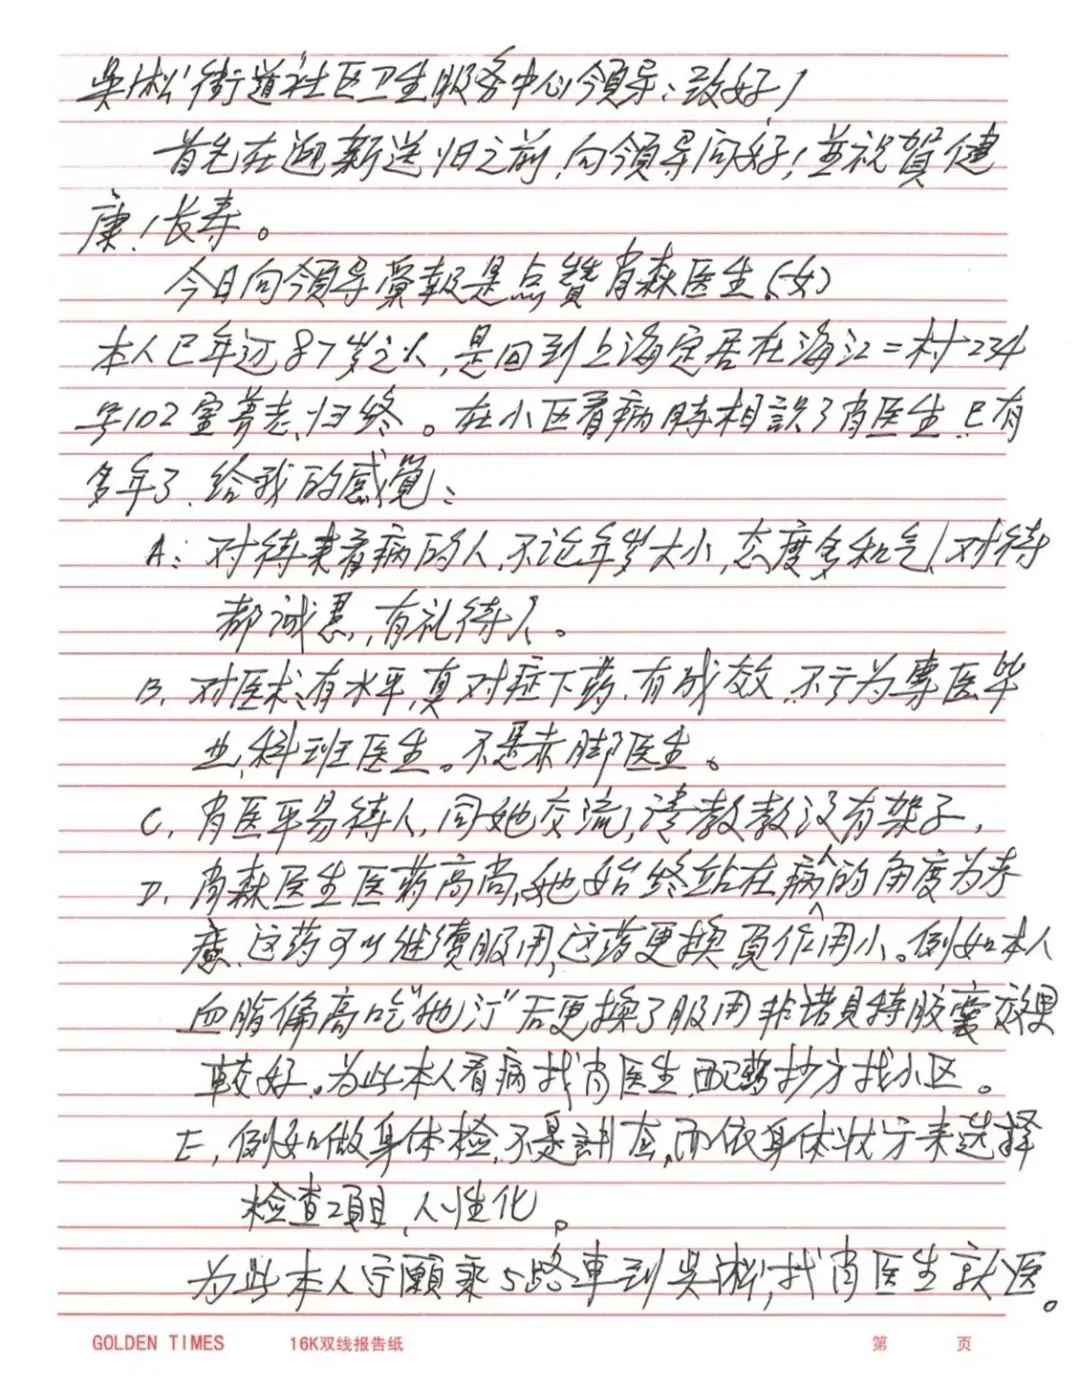 吴淞街道社区卫生服务中心领导：致好！
首先在迎新送旧之前，向領导问好！並祝賀健
康！长寿。
今日向領导彙報是点讚肖森医生（女）
本人已年迈87岁之人，是回到上海定居在海江二村234
号102室养老归终。在小区看病時相識了肖医生已有
多年了，给我的感覚：
A：对待来看病的人，不论年岁大小，态度多和气，对待
都诚恳，有礼待人。
B，对医术有水平，真对症下药，有成效，不亏为專医毕
业，科班医生。不是赤脚医生。
C，肖医平易待人，同她交流，请教教没有架子，
D，肖森医生医药高尚，她始终站在病人的角度为考
慮，这药可以继續服用，这药更换負作用小。例如本人
血脂偏高吃“他汀”后更换了服用非诺貝特胶囊效果
較好。为此本人看病找肖医生，配药抄方找小区。
E，例如做身体检，不是計查，而依身体状方来选择
检查項目，人性化。
为此本人宁願乘5路車到吴淞，找肖医生就医。
GOLDEN TIMES 16K双线报告纸 第 页